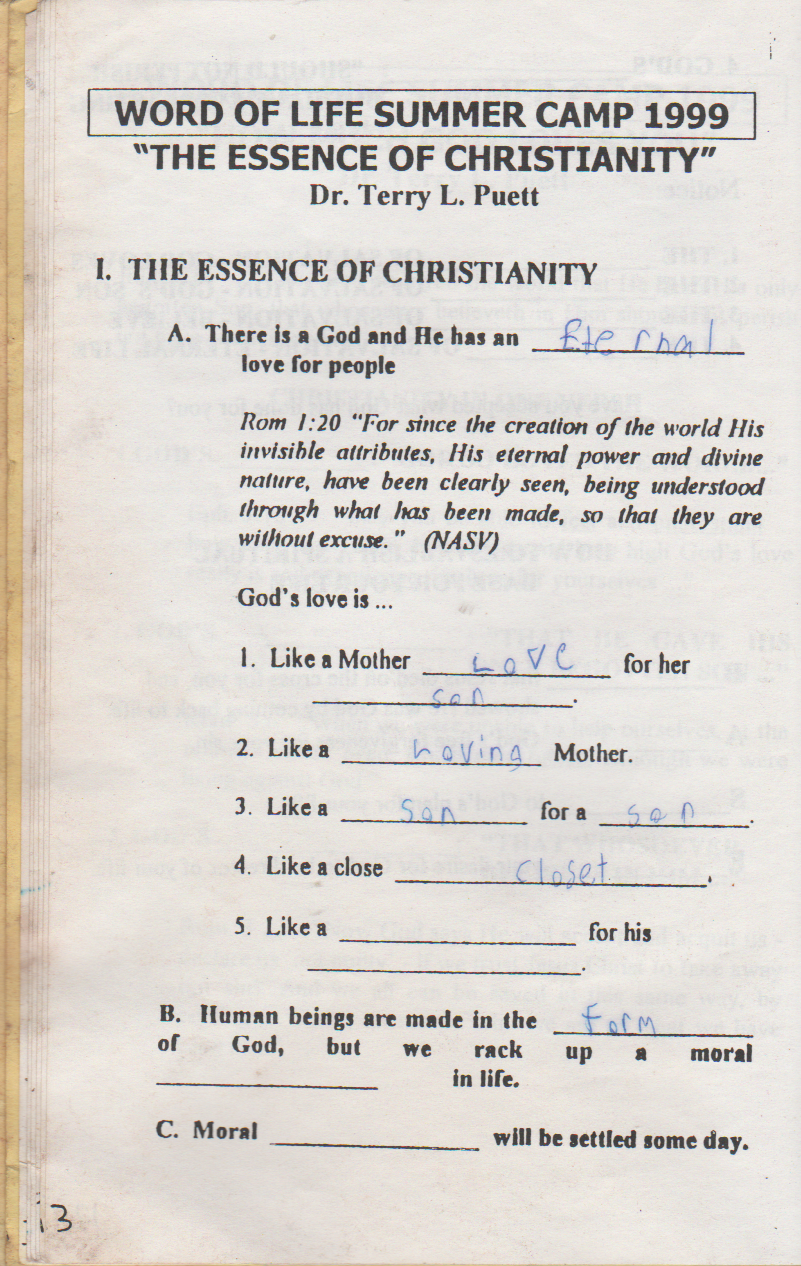 WORD OF LIFE SUMMER CAMP 1999
"THE ESSENCE OF CHRISTIANITY"
Dr. Terry L. Puett
I. THE ESSENCE OF CHRISTIANITY
A. There is a God and He has an Eternal
love for people
Rom 1:20 "For since the creation of the world His
invisible attributes, His eternal power and divine
nature, have been clearly seen, being understood
through what has been made, so that they are
without excuse." (NASV)
God's love is ...
1. Like a Mother Love for her
son.
2. Like a Loving Mother.
3. Like a Son for a son.
4. Like a close closet.
5. Like a ______ for his
______.
B. Human beings are made in the Form
of God, but we rack up a moral
______ in life.
C. Moral ______ will be settled some day.
13